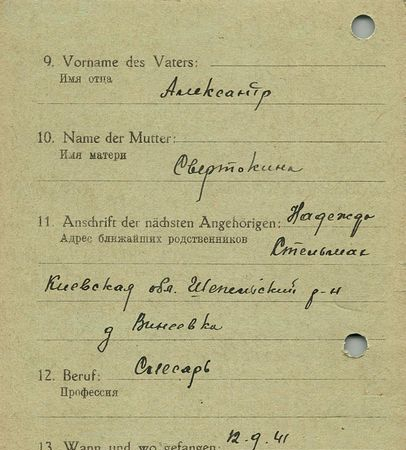 9. Vorname des Vaters:
Имя отца
Александр
10. Name der Mutter:
Имя матери
Свертокина
11. Anschrift der nächsten Angehörigen: Надежда
Адрес ближайших родственников
Стельмах
Киевская обл. р-н
д Винсевка
12. Beruf: Слесарь
Профессия
13. Wann und wo gefangen: 12.9.41